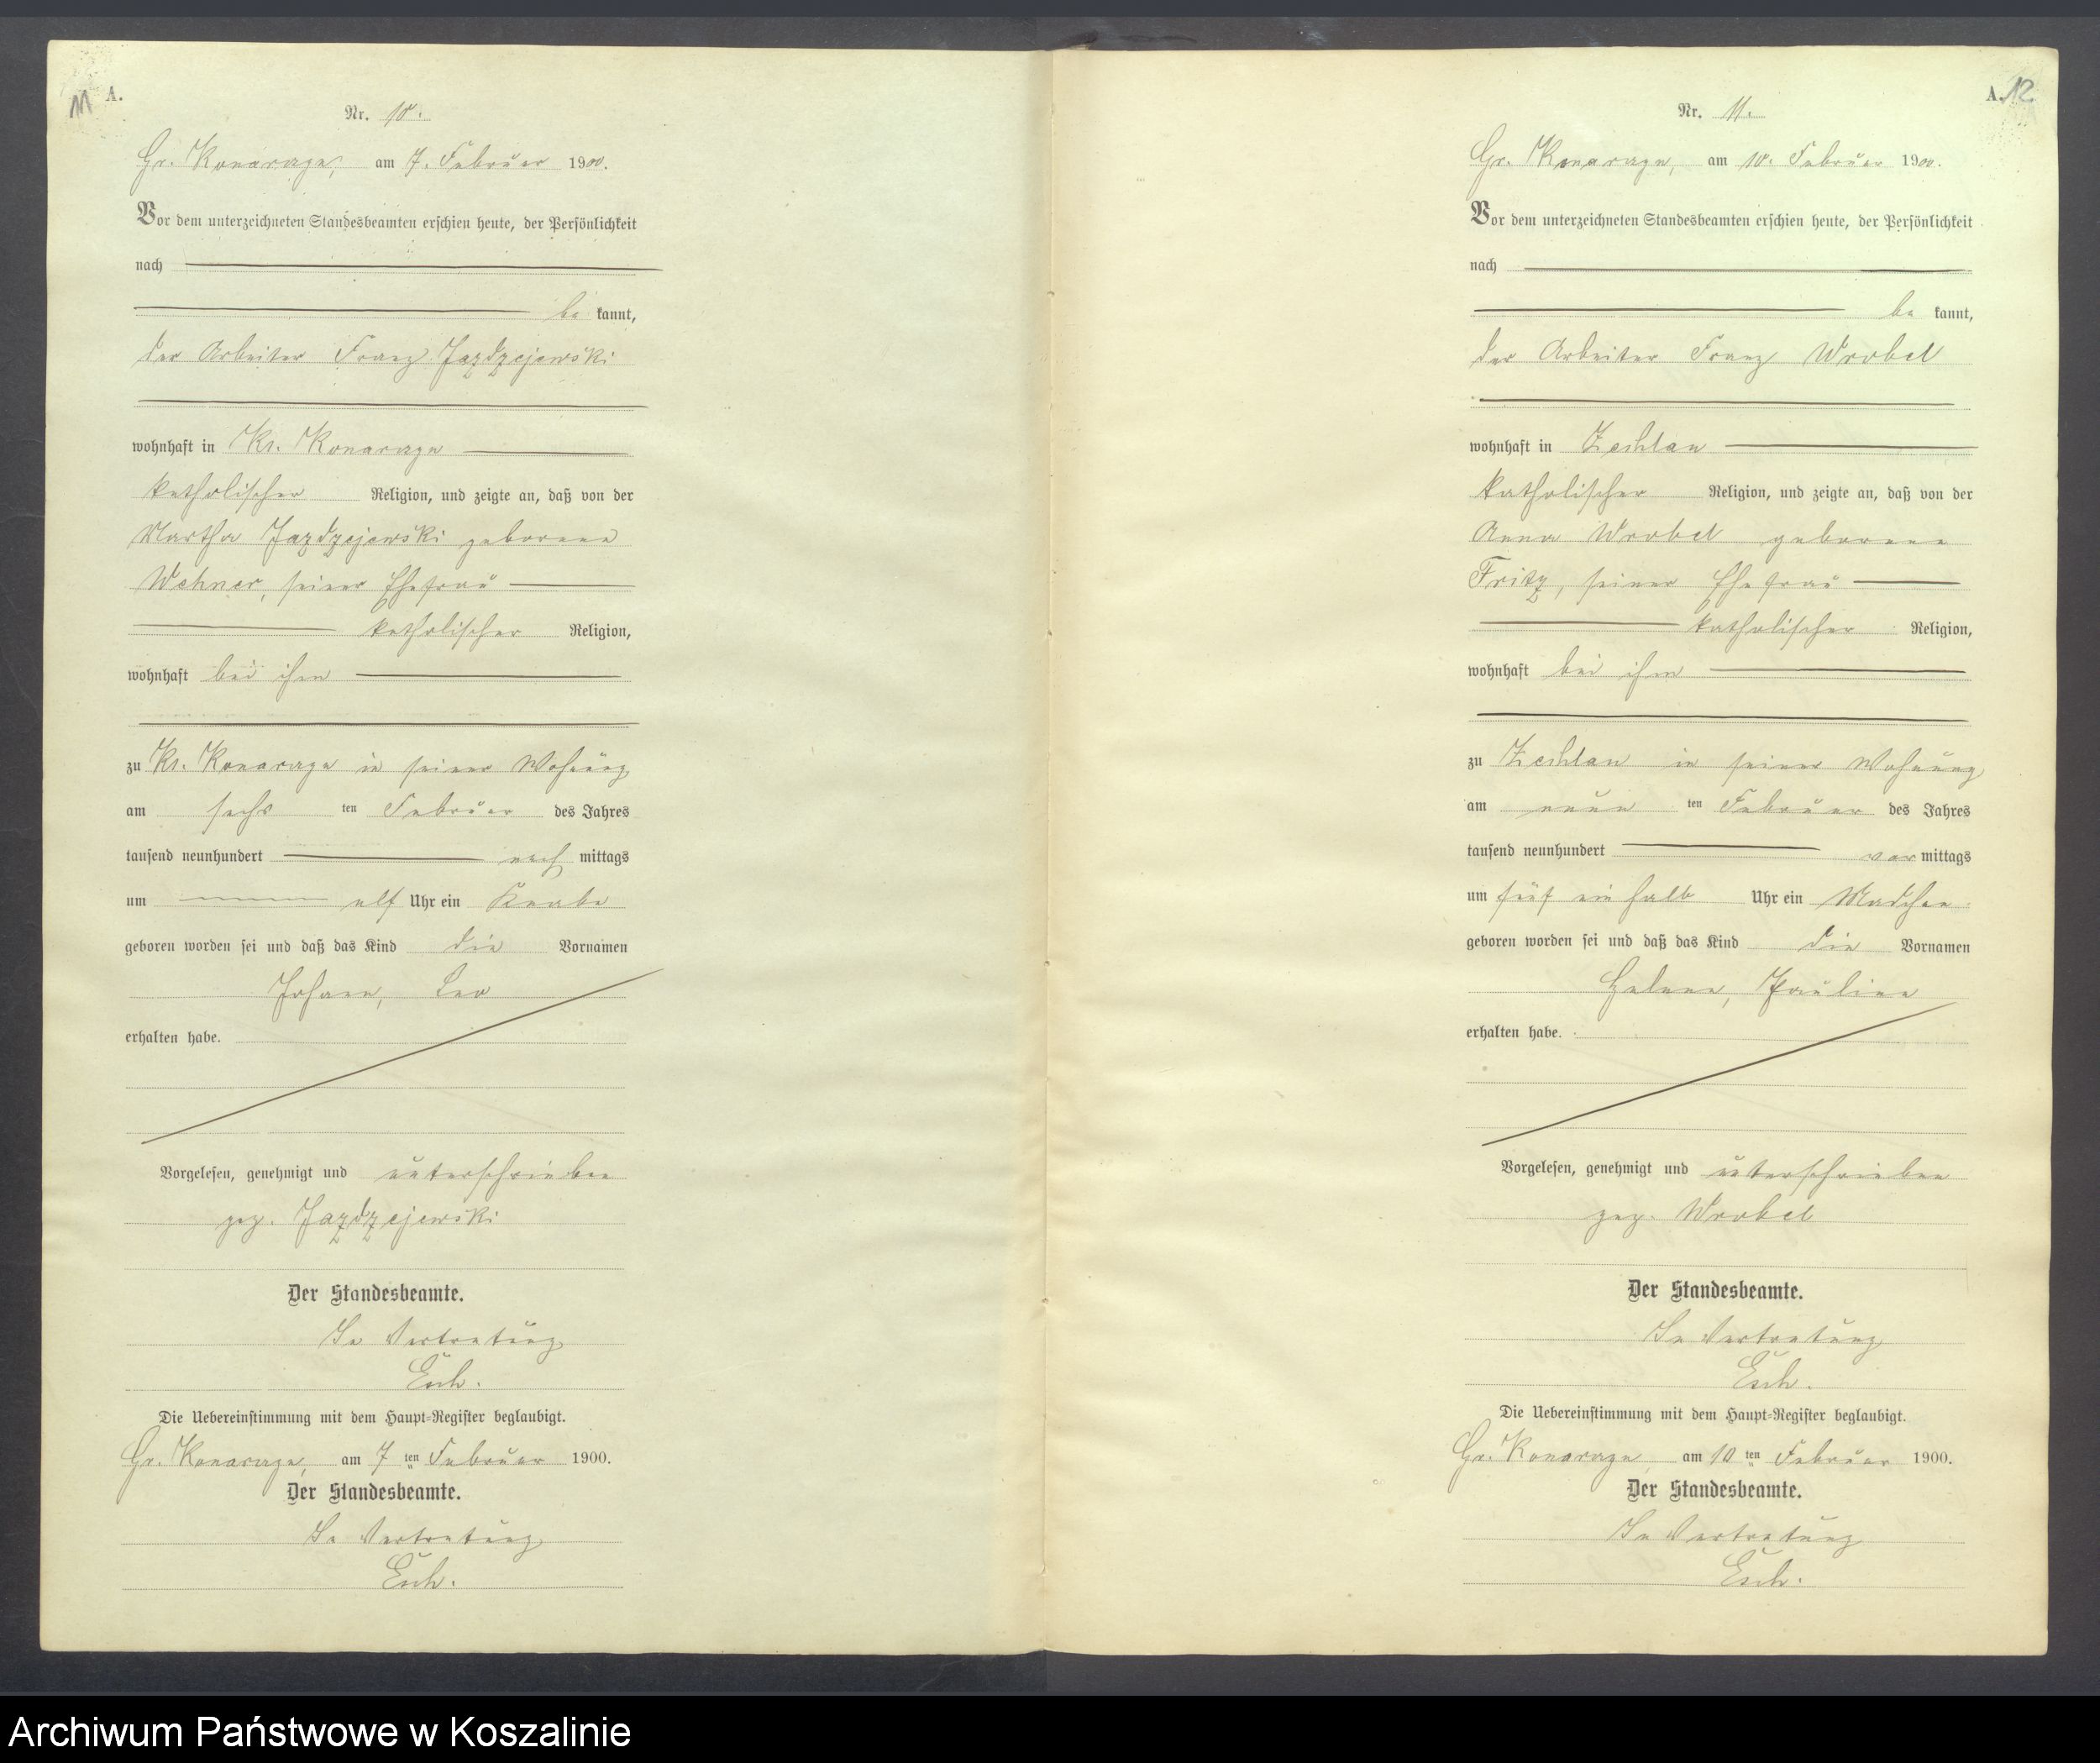 11 A.
Nr. 10.
Gr. Konarzyn, am 7. Februar 1900.
Vor dem unterzeichneten Standesbeamten erschien heute, der Persönlichkeit
nach
be kannt,
der Arbeiter Franz Jazdzejewski
wohnhaft in Kl. Konarzyn
katholischer Religion, und zeigte an, daß von der
Martha Jazdzejewski geborene
Wehner, seiner Ehefrau
katholischer Religion,
wohnhaft bei ihm
zu Kl. Konarzyn in seiner Wohnung
am sechs ten Februar des Jahres
tausend neunhundert nach mittags
um elf Uhr ein Knabe
geboren worden sei und daß das Kind die Vornamen
Johann, Leo
erhalten habe.
Vorgelesen, genehmigt und unterschrieben
gez. Jazdzejewski
Der Standesbeamte.
In Vertretung
Esch.
Die Uebereinstimmung mit dem Haupt-Register beglaubigt.
Gr. Konarzyn, am 7 ten Februar 1900.
Der Standesbeamte.
In Vertretung
Esch.
A. 12
Nr. 11.
Gr. Konarzyn, am 10. Februar 1900.
Vor dem unterzeichneten Standesbeamten erschien heute, der Persönlichkeit
nach
be kannt,
der Arbeiter Franz Wrobel
wohnhaft in Zechlau
katholischer Religion, und zeigte an, daß von der
Anna Wrobel geborene
Fritz, seiner Ehefrau
katholischer Religion,
wohnhaft bei ihm
zu Zechlau in seiner Wohnung
am neun ten Februar des Jahres
tausend neunhundert vor mittags
um fünf ein halb Uhr ein Mädchen
geboren worden sei und daß das Kind die Vornamen
Helene, Pauline
erhalten habe.
Vorgelesen, genehmigt und unterschrieben
gez. Wrobel
Der Standesbeamte.
In Vertretung
Esch.
Die Uebereinstimmung mit dem Haupt-Register beglaubigt.
Gr. Konarzyn, am 10 ten Februar 1900.
Der Standesbeamte.
In Vertretung
Esch.
Archiwum Państwowe w Koszalinie